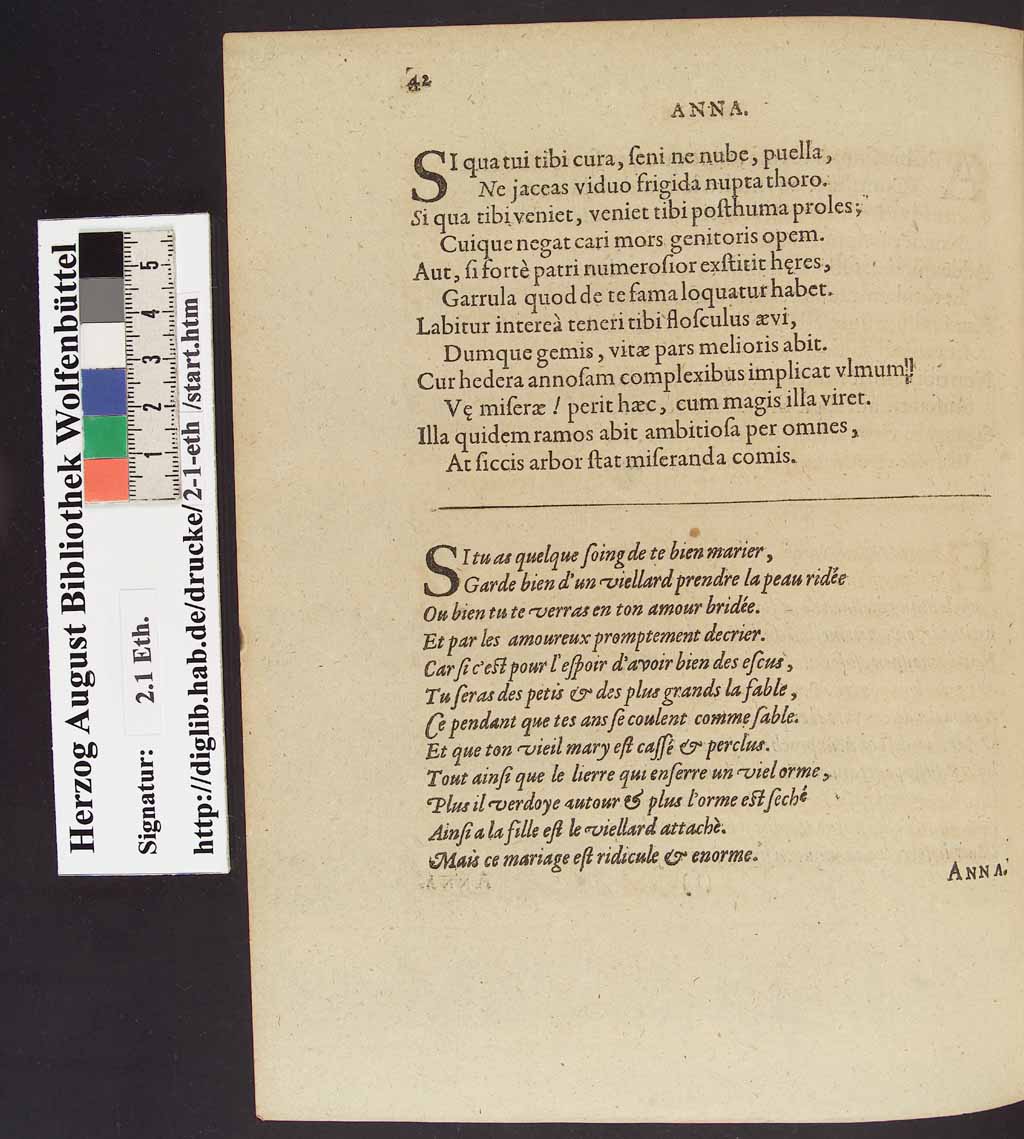 42
ANNA.
SI qua tui tibi cura, ſeni ne nube, puella,
Ne jaceas viduo frigida nupta thoro.
Si qua tibi veniet, veniet tibi poſthuma proles;
Cuique negat cari mors genitoris opem.
Aut, ſi fortè patri numeroſior exſtitit hęres,
Garrula quod de te fama loquatur habet.
Labitur intereà teneri tibi floſculus ævi,
Dumque gemis, vitæ pars melioris abit.
Cur hedera annoſam complexibus implicat vlmum!
Vę miſeræ! perit hæc, cum magis illa viret.
Illa quidem ramos abit ambitioſa per omnes,
At ſiccis arbor ſtat miſeranda comis.
SI tu as quelque ſoing de te bien marier,
Garde bien d'un viellard prendre la peau ridée
Ou bien tu te verras en ton amour bridée.
Et par les amoureux promptement decrier.
Car ſi c'eſt pour l'eſpoir d'avoir bien des eſcus,
Tu ſeras des petis & des plus grands la fable,
Ce pendant que tes ans ſe coulent comme ſable.
Et que ton vieil mary eſt caſſé & perclus.
Tout ainſi que le lierre qui enſerre un viel orme,
Plus il verdoye autour & plus l'orme eſt ſeché
Ainſi a la fille eſt le viellard attachè.
Mais ce mariage eſt ridicule & enorme.
ANNA.
Herzog August Bibliothek Wolfenbüttel
Signatur: 2.1 Eth.
http://diglib.hab.de/drucke/2-1-eth/start.htm
5
4
3
2
1